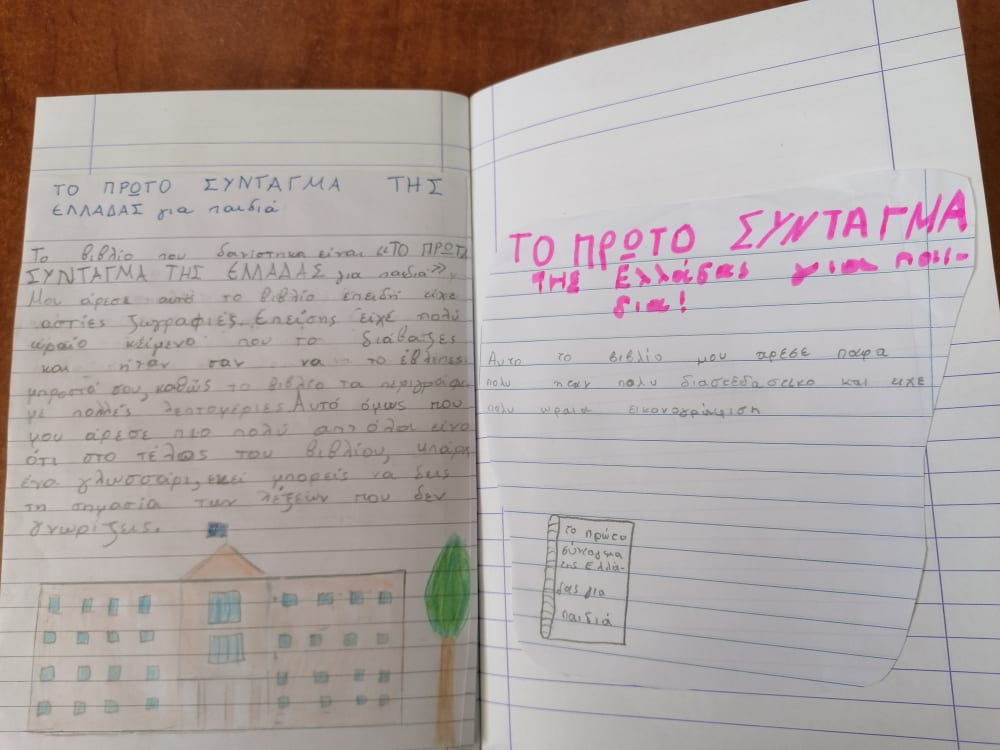 ΤΟ ΠΡΩΤΟ ΣΥΝΤΑΓΜΑ ΤΗΣ
ΕΛΛΑΔΑΣ για παιδιά
Το βιβλίο που δανίστηκα είναι «ΤΟ ΠΡΩΤΟ
ΣΥΝΤΑΓΜΑ ΤΗΣ ΕΛΛΑΔΑΣ για παδιά».
Μου άρεσε αυτό το βιβλίο επειδή είχε
αστίες ζωγραφιές. Επείσης είχε πολύ
ωραίο κείμενο που το διάβαζες
και ήταν σαν να το έβλεπες
μπροστά σου, καθώς το βιβλίο τα περιγράφει
με πολλές λεπτομέριες. Αυτό όμως που
μου άρεσε πιο πολύ απ' όλα είναι
ότι στο τέλος του βιβλίου, υπάρχει
ένα γλωσσάρι, εκεί μπορείς να δεις
τη σημασία των λέξεων που δεν
γνωρίζεις.
ΤΟ ΠΡΩΤΟ ΣΥΝΤΑΓΜΑ
ΤΗΣ Ελλάδας για παι-
δια!
Αυτο το βιβλίο μου αρεσε παρα
πολυ ηταν πολυ διασκεδαστικο και ειχε
πολυ ωραια εικονογράφιση
το πρώτο
σύνταγμα
της Ελλά-
δας για
παιδιά